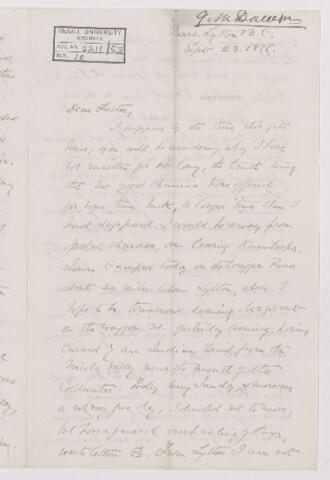 G.M. Dawson
McGILL UNIVERSITY
ARCHIVES
ACC. NO. 2211/53
REF. 10
Near Lytton B.C.
Sept 23. 1876.
Dear Father,
I suppose by the time this gets
home, you will be wondering why I have
not written for so long, the truth being
that no good chances have offered
for some time back, a longer time than I
had supposed I would be away from
postal chances, on leaving Kamloops.
I am camped today on the Waggon Road
about six miles below Lytton, where I
hope to be tomorrow evening. We got out
on the waggon rd. yesterday evening, having
crossed by an Indian trail from the
Nicola Valley near the mouth of the
Coldwater. Today being Sunday & moreover
a rainy day, I decided not to move,
but have a general overhauling of things,
write letters &c. From Lytton I am not